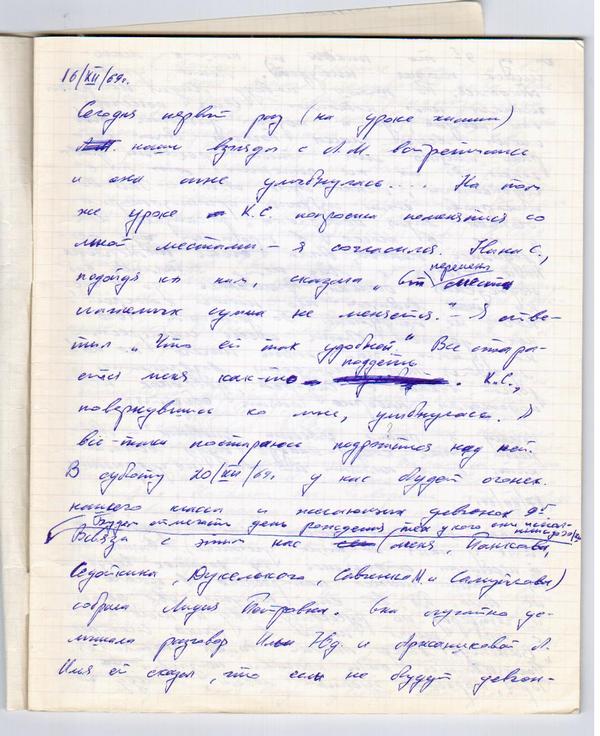 16/XII/69г.
Сегодня первый раз (на уроке химии)
наши взгляды с Л.М. встретились
и она мне улыбнулась.... На том
же уроке К.С. попросила поменяться со
мной местами – я согласился. Нина С.,
подойдя к нам, сказала „От перемены мест
слагаемых сумма не меняется." – Я отве-
тил „Что ей так удобней" Все стара-
ются меня как-то поддеть. К.С.,
повернувшись ко мне, улыбнулась. Я
всё-таки постараюсь подружиться над ней.
В субботу 20/XII/69г. у нас будет огонёк.
нашего класса и желающих девчонок 9
Будем отмечать день рождения (тех у кого они
Всвязи с этим нас (меня, Панкова,
Седойкина, Дукельского, Савченко и
собрала Лидия Петровна. Она случайно ус-
лышала разговор Ильи и Аржаниковой Л.
Илья ей сказал, что если не будут девчон-